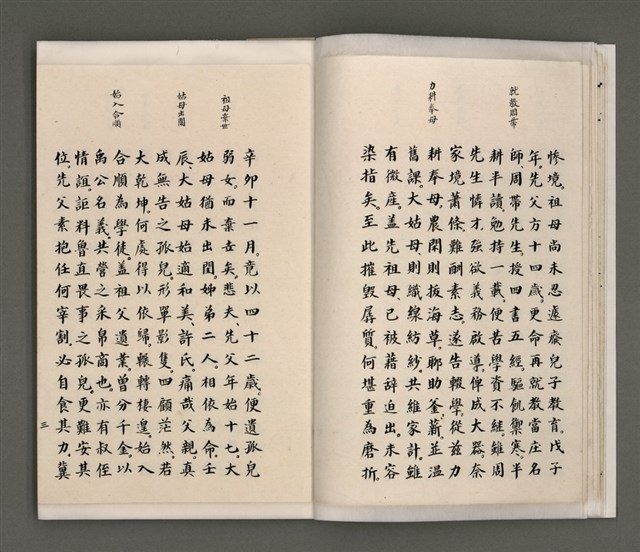 就教周帶
力耕奉母
慘境。祖母尚未忍遽廢兒子教育。戊子
年。先父方十四歲。更命再就教當庄名
師、周帶先生。授四書五經。驅飢禦寒。半
耕半讀。勉持一載。便苦學資不經。雖周
先生憐才。欲義務啟導。俾成大器。奈
家境蕭條。難酬素志。遂告輟學。從茲力
耕奉母。農閑則拔海草。聊助釜薪。並溫
舊課。大姑母則織線紡紗。共維家計。雖
有微產。蓋先祖母、已被藉辭迫出。未容
染指矣。至此摧毀孱質。何堪重為磨折。
祖母棄世
姑母出閣
始入合順
辛卯十一月。竟以四十二歲。便遺孤兒
弱女。而棄世矣。悲夫。先父年始十七。大
姑母猶未出閣。姊弟二人。相依為命。壬
辰、大姑母始適和美、許氏。痛哉父親。真
成無告之孤兒。形單影隻。四顧茫然。若
大乾坤。何處得以依歸。輾轉棲皇。始入
合順為學徒。蓋祖父遺業。曾分千金。以
禹公名義。共營之釆帛商也。亦有叔侄
情誼。詎料魯直畏事之孤兒。更難安其
位。先父素抱任何宰割。必自食其力。冀
三